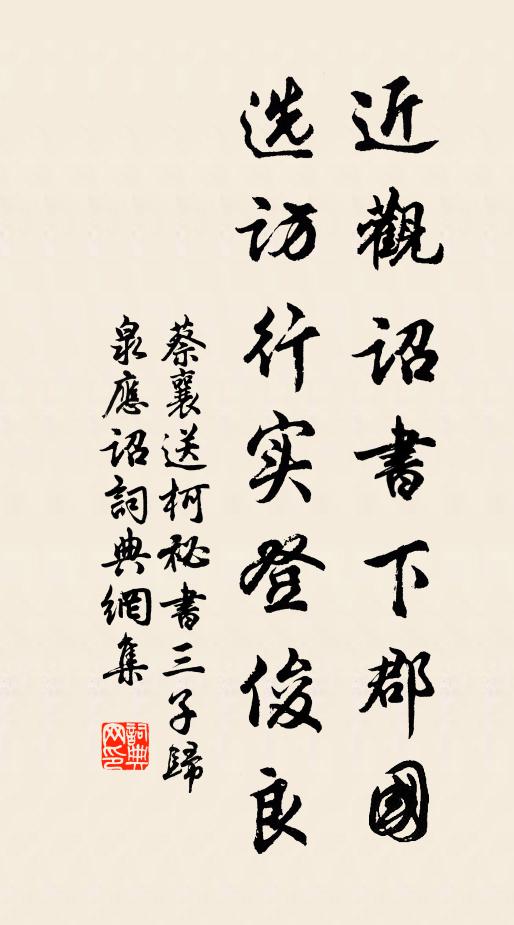 近觀詔書下郡國
选访行实登俊良
蔡襄送柯祕書三子歸
泉應詔詞典網集
詞典
网印